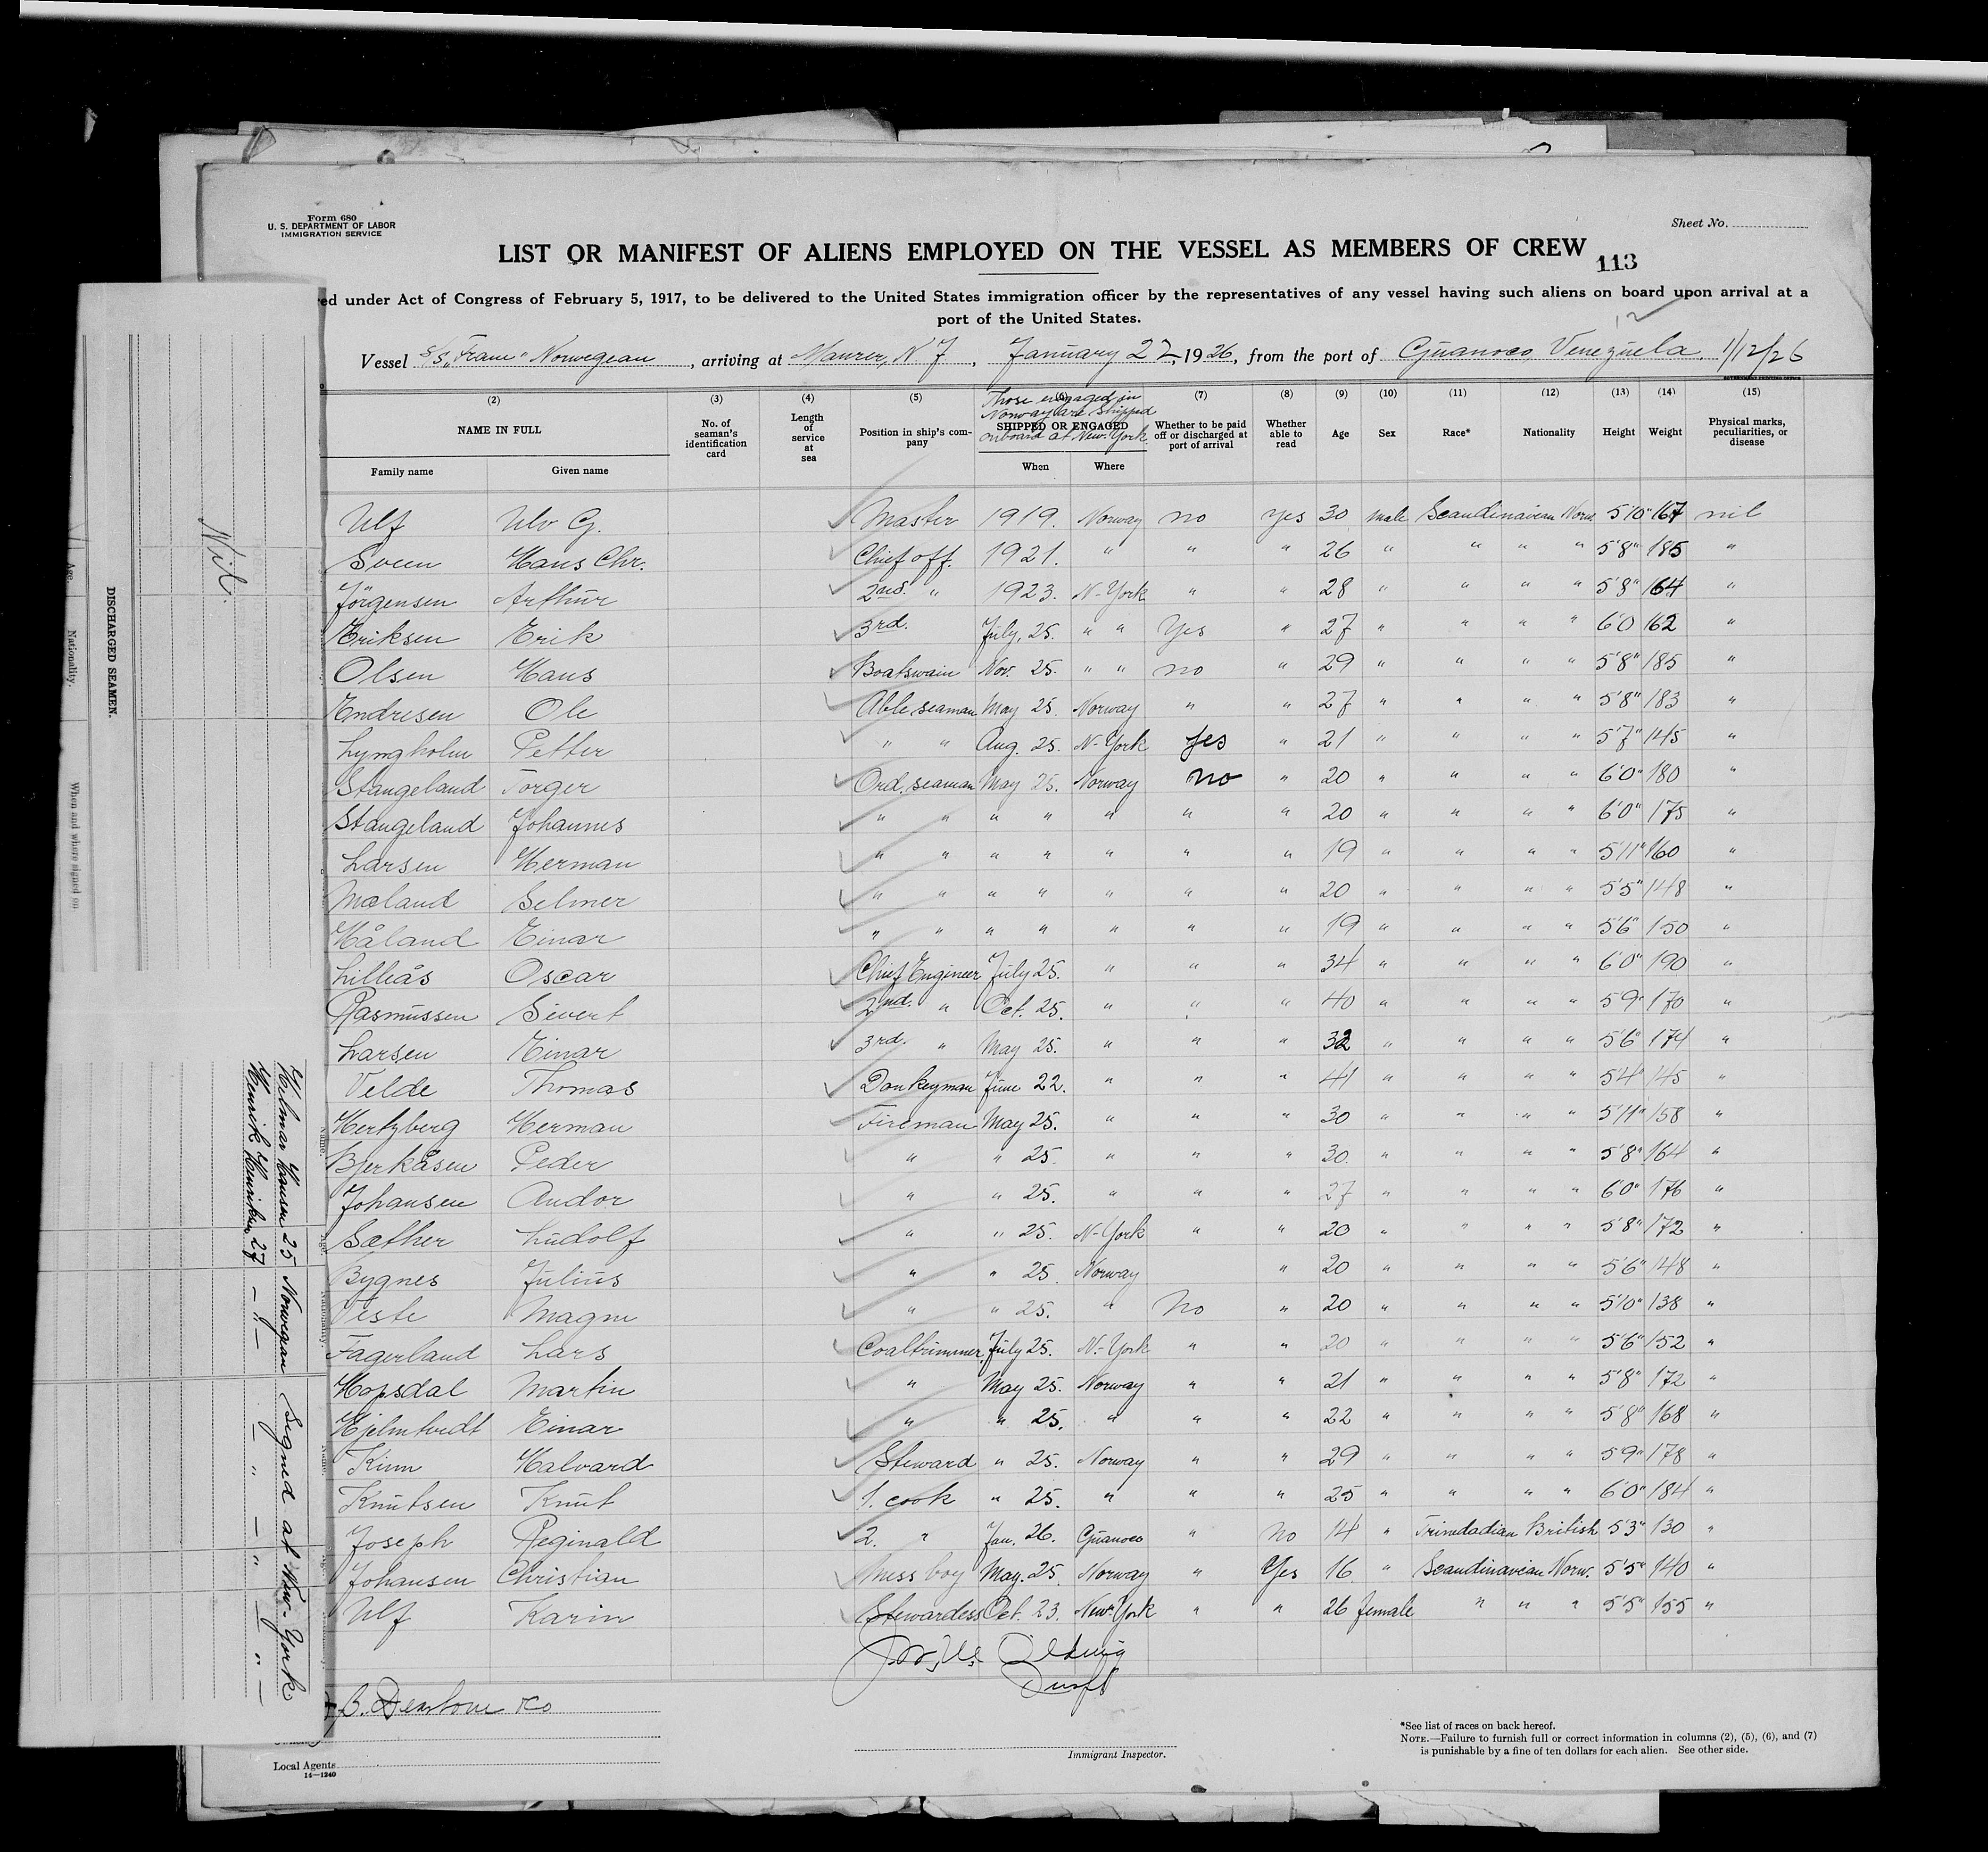 Form 680
U. S. DEPARTMENT OF LABOR
IMMIGRATION SERVICE
Sheet No.
LIST OR MANIFEST OF ALIENS EMPLOYED ON THE VESSEL AS MEMBERS OF CREW
113
ed under Act of Congress of February 5, 1917, to be delivered to the United States immigration officer by the representatives of any vessel having such aliens on board upon arrival at a
port of the United States.
Vessel S/S „Fram" Norwegean, arriving at Maurer, N J, January 22, 1926, from the port of Guanoco, Venezuela. 1/12/26
(2) (3) (4) (5) (6) (7) (8) (9) (10) (11) (12) (13) (14) (15)
Those engaged in Norway are shipped onboard at New-York.
NAME IN FULL No. of seaman's identification card Length of service at sea Position in ship's company SHIPPED OR ENGAGED Whether to be paid off or discharged at port of arrival Whether able to read Age Sex Race* Nationality Height Weight Physical marks, peculiarities, or disease
Family name Given name When Where
Ulf Ulv G. Master 1919. Norway no yes 30 male Scandinavian Norw. 5'10" 167 nil
Sveen Hans Chr. Chief off. 1921. " " " 26 " " " " 5'8" 185 "
Jörgensen Arthur 2nd. " 1923. N-York " " 28 " " " " 5'8" 164 "
Eriksen Erik 3rd. July, 25. " " Yes " 27 " " " " 6'0 162 "
Olsen Hans Boatswain Nov. 25. " " no " 29 " " " " 5'8" 185 "
Endresen Ole Able seaman May 25. Norway " " 27 " " " " 5'8" 183 "
Lyngholm Petter " " Aug. 25. N-York yes " 21 " " " " 5'7" 145 "
Stangeland Torger Ord. seaman May 25. Norway no " 20 " " " " 6'0" 180 "
Stangeland Johannes " " " " " " " 20 " " " " 6'0" 175 "
Larsen Herman " " " " " " " 19 " " " " 5'11" 160 "
Mæland Selmer " " " " " " " 20 " " " " 5'5" 148 "
Håland Einar " " " " " " " 19 " " " " 5'6" 150 "
Lilleås Oscar Chief Engineer July 25. " " " 34 " " " " 6'0" 190 "
Rasmussen Sivert 2nd. " Oct. 25. " " " 40 " " " " 5'9" 170 "
Larsen Einar 3rd. " May 25. " " " 32 " " " " 5'6" 174 "
Velde Thomas Donkeyman June 22. " " " 41 " " " " 5'4" 145 "
Hertzberg Herman Fireman May 25. " " " 30 " " " " 5'11" 158 "
Bjerkåsen Peder " " 25. " " " 30. " " " " 5'8" 164 "
Johansen Andor " " 25. " " " 27 " " " " 6'0" 176 "
Sæther Ludolf " " 25. N-York " " 20 " " " " 5'8" 172 "
Bygnes Julius " " 25. Norway " 20 " " " " 5'6" 148 "
Teste Magne " " 25. " No " 20 " " " " 5'10" 138 "
Fagerland Lars Coaltrimmer. July 25. N-York " " 20 " " " " 5'6" 152 "
Hopsdal Martin " May 25. Norway " " 21 " " " " 5'8" 172 "
Hjelmtvedt Einar " " 25. " " " 22 " " " " 5'8" 168 "
Kinn Halvard Steward " 25. Norway " " 29 " " " " 5'9" 178 "
Knutsen Knut 1. cook " 25. " " " 25 " " " " 6'0" 184 "
Joseph Reginald 2. " Jan. 26. Guanoco " no 14 " Trinidadian British 5'3" 130 "
Johansen Christian Mess boy May. 25. Norway " Yes 16 " Scandinavian Norw. 5'5" 140 "
Ulf Karin Stewardess Oct. 23. New-York " " 26 female " " " 5'5" 155 "
Immigrant Inspector.
Local Agents
14—1240
*See list of races on back hereof.
NOTE.—Failure to furnish full or correct information in columns (2), (5), (6), and (7)
is punishable by a fine of ten dollars for each alien. See other side.
DISCHARGED SEAMEN.
Age. Nationality. When and where signed on
Nil.
Hilmar Hansen 25 Norwegian Signed at New-York
Henrik Henriksen 27 — " — — " — " — " —